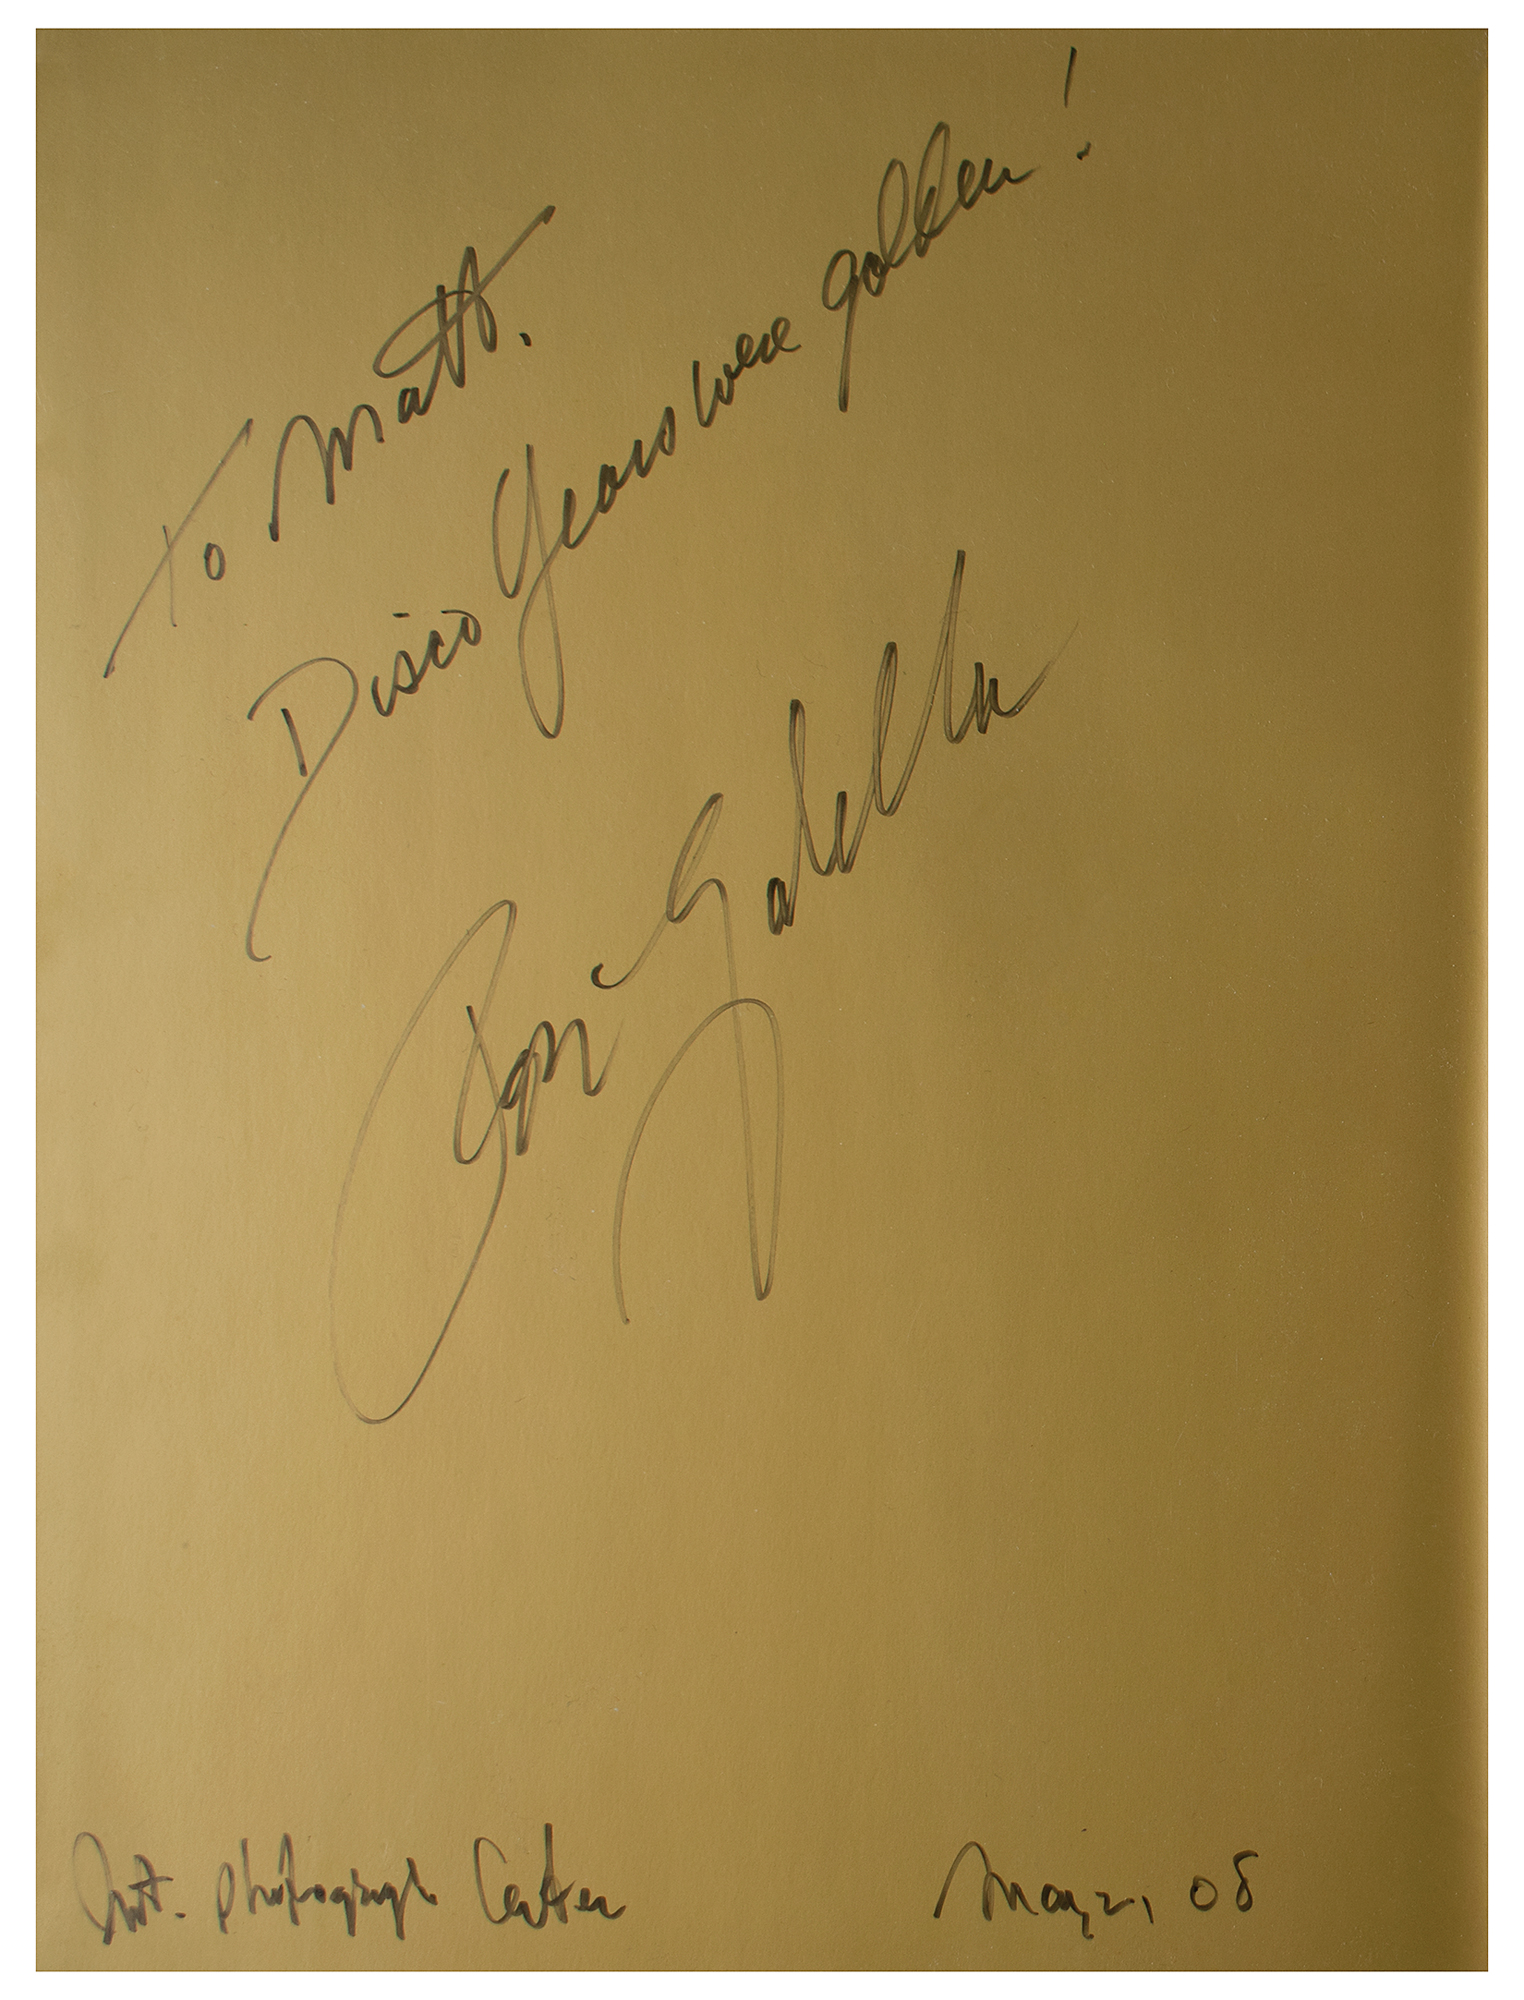 To Matt.
Disco Years were golden!
Ron Galella
Int. Photograph Center
May, 2, 08